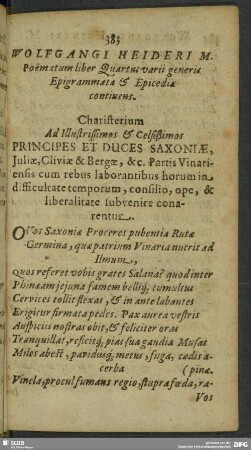 383
WOLFGANGI HEIDERI M.
Poëmatum liber Quartus varii generis
Epigrammata & Epicedia
continens.
Charisterium
Ad Illustrissimos & Celsissimos
PRINCIPES ET DUCES SAXONIÆ,
Juliæ, Cliviæ & Bergæ, &c. Partis Vinari-
ensis cum rebus laborantibus horum in
difficultate temporum, consilio, ope, &
liberalitate subvenire cona-
rentur.
O Vos Saxoniæ Proceres pubentia Rutæ
Germina, quæ patrium Vinaria nutrit ad
Ilmum,
Quos referet vobis grates Salana? quod inter
Phineam jejuna famem bellique tumultus
Cervices tollit flexas, & in ante labantes
Erigitur firmata pedes. Pax aurea vestris
Auspiciis nostras obit, & feliciter oras
Tranquillat, reficitque pias sua gaudia Musas
Miles abest, pavidusque metus, fuga, cædis a-
cerba (pinæ.
Vincla, procul fumans regio, stupra fœda, ra-
Vos
SLUB